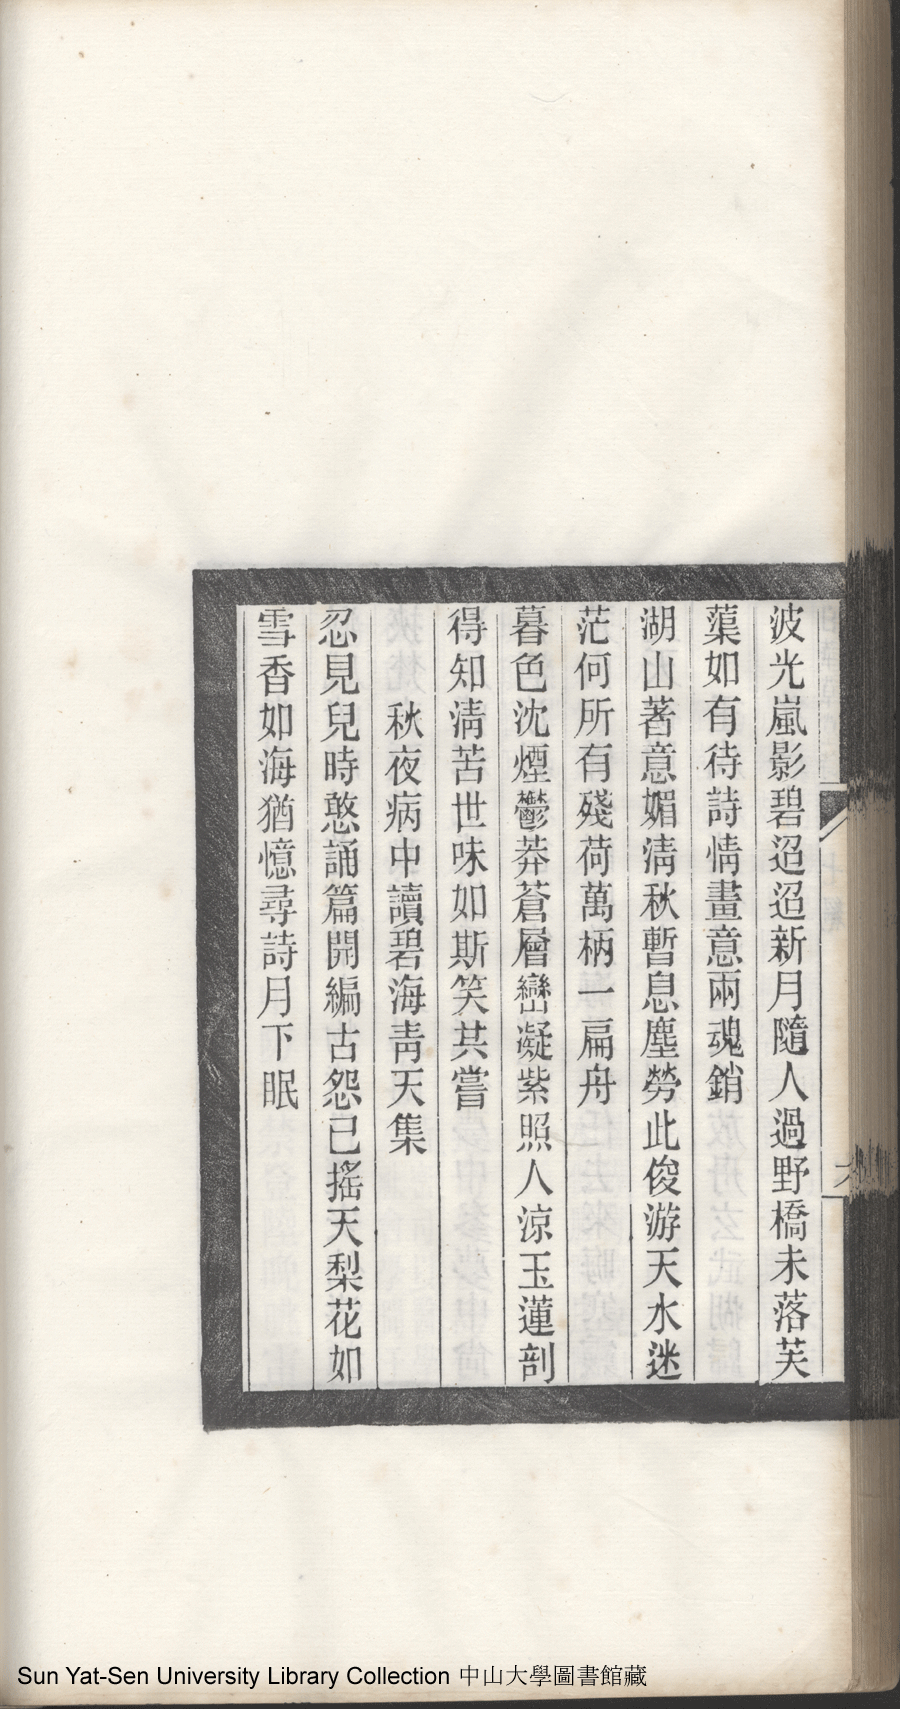 波光嵐影碧迢迢新月隨人過野橋未落芙
蕖如有待詩情畫意兩魂銷
湖山著意媚清秋暫息塵勞此俊游天水迷
茫何所有殘荷萬柄一扁舟
暮色沈煙鬱莽蒼層巒凝紫照人涼玉蓮剖
得知清苦世味如斯笑共嘗
秋夜病中讀碧海青天集
忍見兒時憨誦篇開編古怨已搖天梨花如
雪香如海猶憶尋詩月下眠
Sun Yat-Sen University Library Collection 中山大學圖書館藏